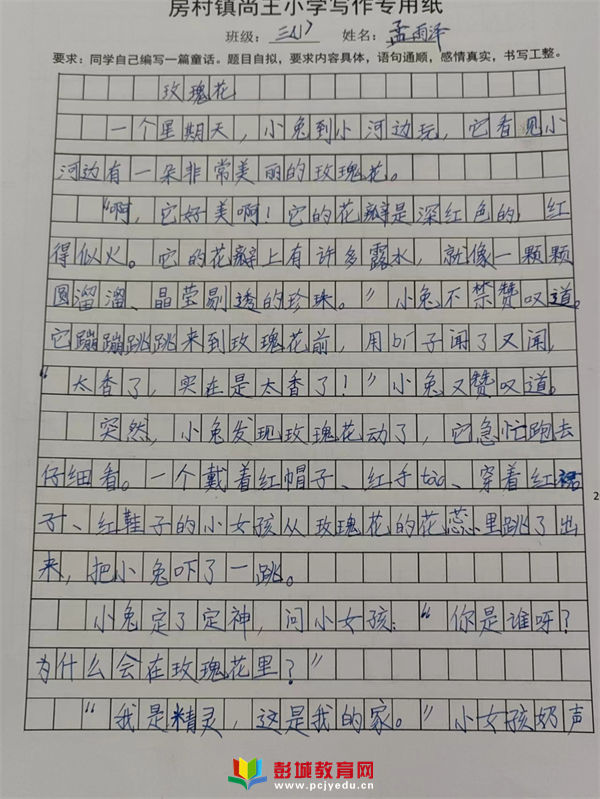 房村镇尚王小学写作专用纸
班级：三(1) 姓名：孟雨泽
要求：同学自己编写一篇童话。题目自拟，要求内容具体，语句通顺，感情真实，书写工整。
玫瑰花
一个星期天，小兔到小河边玩，它看见小
河边有一朵非常美丽的玫瑰花。
“啊，它好美啊！它的花瓣是深红色的，红
得似火。它的花瓣上有许多露水，就像一颗颗
圆溜溜、晶莹剔透的珍珠。”小兔不禁赞叹道。
它蹦蹦跳跳来到玫瑰花前，用bí子闻了又闻，
“太香了，实在是太香了！”小兔又赞叹道。
突然，小兔发现玫瑰花动了，它急忙跑去
仔细看。一个戴着红帽子、红手tào、穿着红裙
子、红鞋子的小女孩从玫瑰花的花蕊里跳了出
来，把小兔吓了一跳。
小兔定了定神，问小女孩：“你是谁呀？
为什么会在玫瑰花里？”
“我是精灵，这是我的家。”小女孩奶声
2
彭城教育网
www.pcjyedu.cn